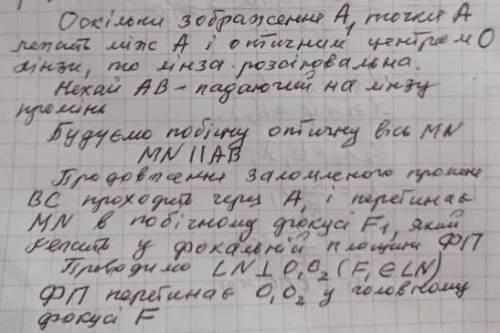 Оскільки зображення A₁ точки A
лежить між A і оптичним центром O
лінзи, то лінза розсіювальна.
Нехай AB - падаючий на лінзу
промінь
Будуємо побічну оптичну вісь MN
MN || AB
Продовження заломленого променя
BC проходить через A₁ і перетинає
MN в побічному фокусі F₁, який
лежить у фокальній площині ФП
Проводимо LN ⊥ O₁O₂ (F₁ ∈ LN)
ФП перетинає O₁O₂ у головному
фокусі F